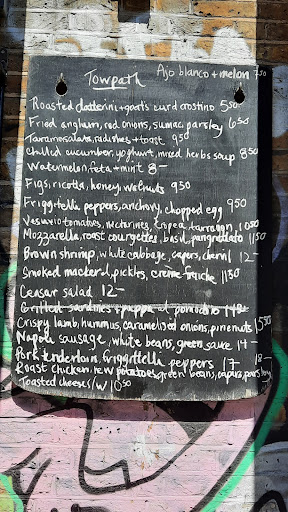 Towpath
Ajo blanco + melon 7 50
Roasted datterini + goat's curd crostino 5 50
Fried onglum, red onions, sumac, parsley 6 50
Taramosalata, radishes + toast 9 50
Chilled cucumber, yoghurt, mixed herbs soup 8 -
Watermelon feta + mint 8 -
Figs, ricotta, honey, walnuts 9 50
Friggitelli peppers, anchovy, chopped egg 9 50
Vesuvio tomatoes, nectarines, tropea, tarragon 10 50
Mozzarella, roast courgettes, basil, pangrattato 11 50
Brown shrimp, white cabbage, capers, chervil 12 -
Smoked mackerel, pickles, crème fraîche 11 50
Caesar salad 12 -
Grilled sardines + pappa al pomodoro 14 50
Crispy lamb, hummus, caramelised onions, pinenuts 15 50
Napoli sausage, white beans, green sauce 14 -
Pork tenderloin, friggitelli peppers 17
Roast chicken, new potatoes, green beans, capers, parsley 18 -
Toasted cheese s/w 10 50